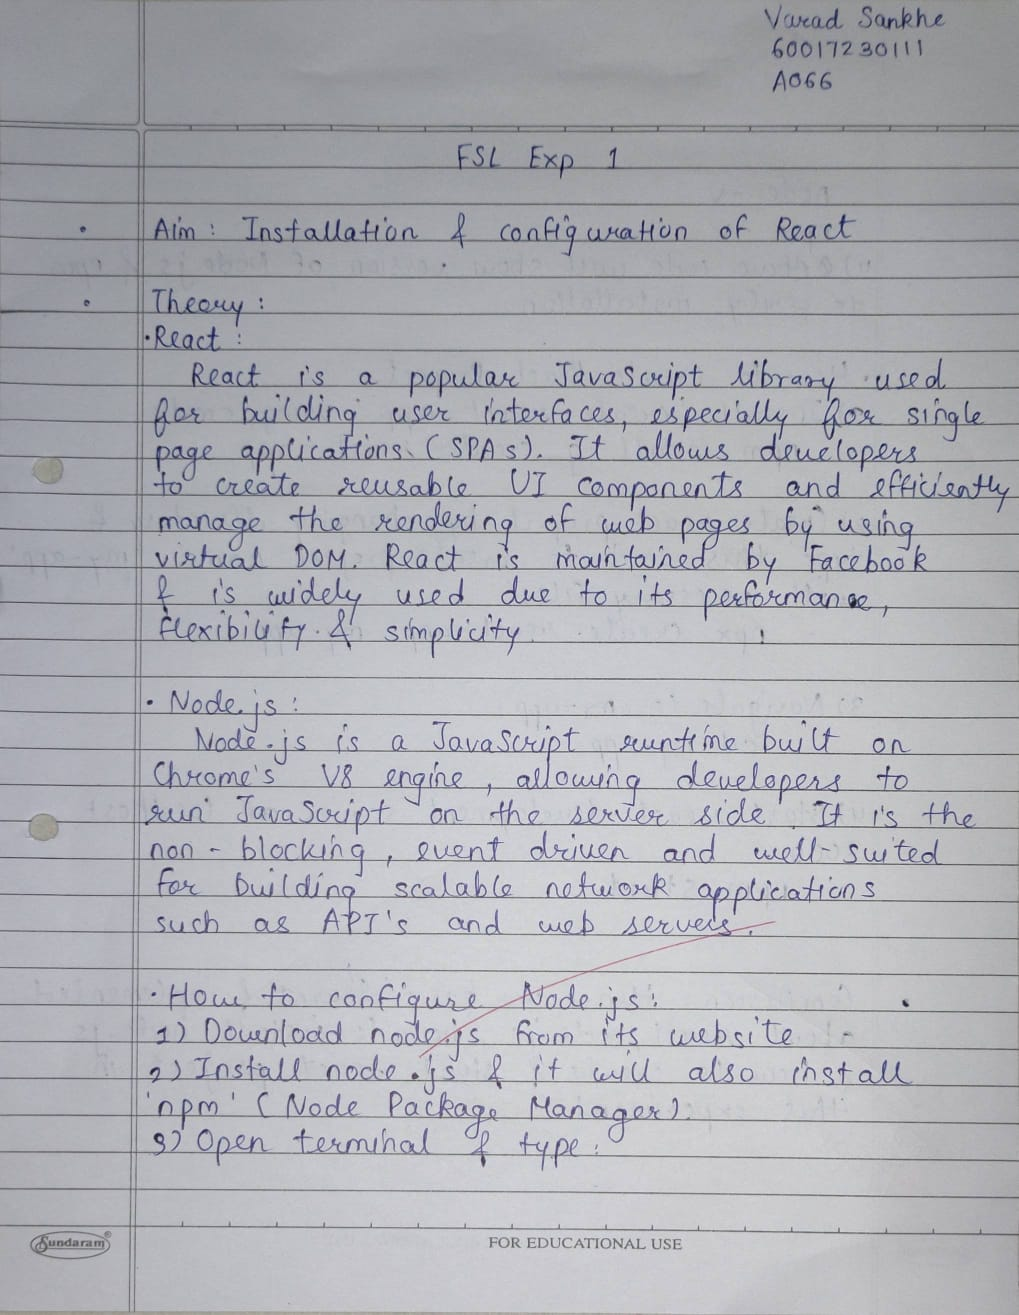 Varad Sankhe
60017230111
A066
FSL Exp 1
• Aim : Installation & configuration of React
• Theory :
• React :
React is a popular JavaScript library used
for building user interfaces, especially for single
page applications (SPAs). It allows developers
to create reusable UI components and efficiently
manage the rendering of web pages by using
virtual DOM. React is maintained by Facebook
& is widely used due to its performance,
flexibility & simplicity
• Node.js :
Node.js is a JavaScript runtime built on
Chrome's V8 engine, allowing developers to
run JavaScript on the server side. It is the
non-blocking, event driven and well-suited
for building scalable network applications
such as API's and web servers.
• How to configure Node.js :
1) Download node.js from its website
2) Install node.js & it will also install
'npm' (Node Package Manager).
3) Open terminal & type :
Sundaram®
FOR EDUCATIONAL USE